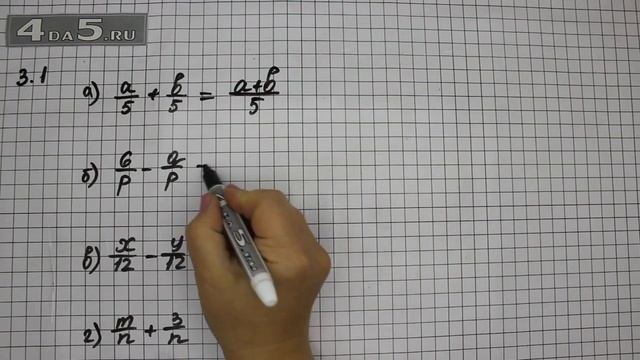 4DA5.RU
3.1
а) a/5 + b/5 = a+b/5
б) 6/p - a/p -
в) x/12 - y/12
г) m/n + 3/n